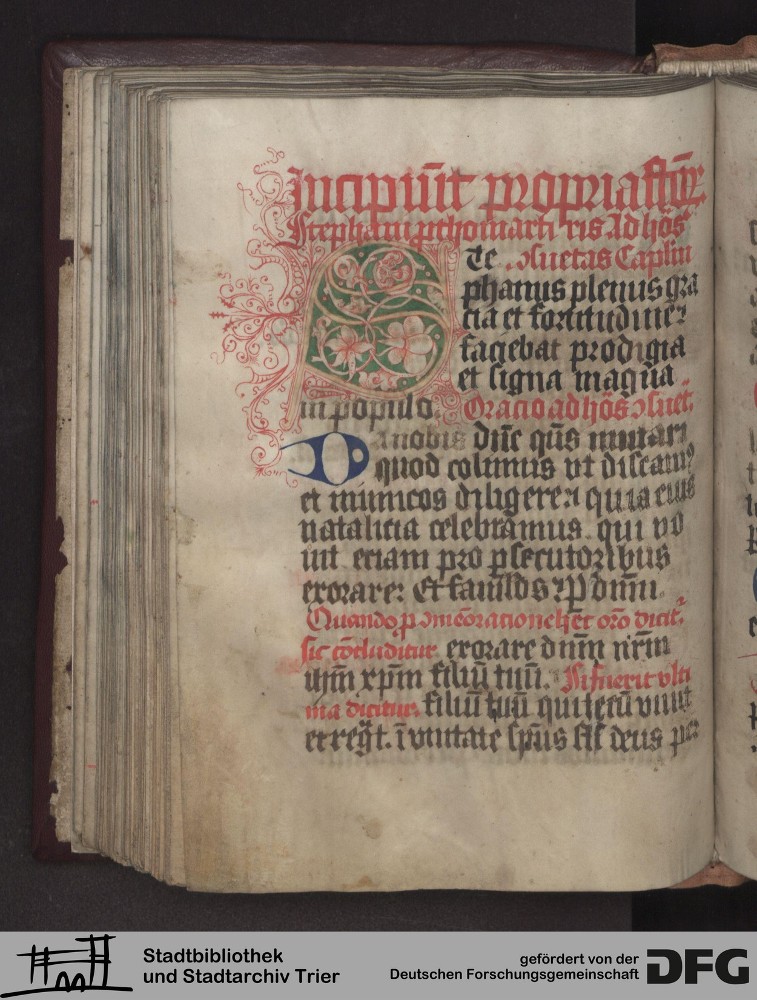 Incipiūt propria sctōꝝ
Stephani ꝓthomarti ris Ad hōs
Te ↄsuetas Caplm
phanus plenus gra
cia et fortitudine
faciebat prodigia
et signa magna
in populo. Oracio ad hōs ↄsuet.
Da nobis dn̄e qūs imitari
quod colimus vt discam9
et inimicos diligere: quia eius
natalicia celebramus qui no
uit eciam pro ꝑsecutoribus
exorare: Et famlos Pdn̄m
Quando ꝓ ↄmēoracione hec orō dicit.
sic cōcluditur exorare dn̄m nr̄m
ihm xp̄m filiū tuū. Si fuerit vlti
ma dicitur. filiū tuū qui tecū viuit
et regt. ī vnitate sp̄us sc̄i deus per
Stadtbibliothek
und Stadtarchiv Trier
gefördert von der
Deutschen Forschungsgemeinschaft
DFG